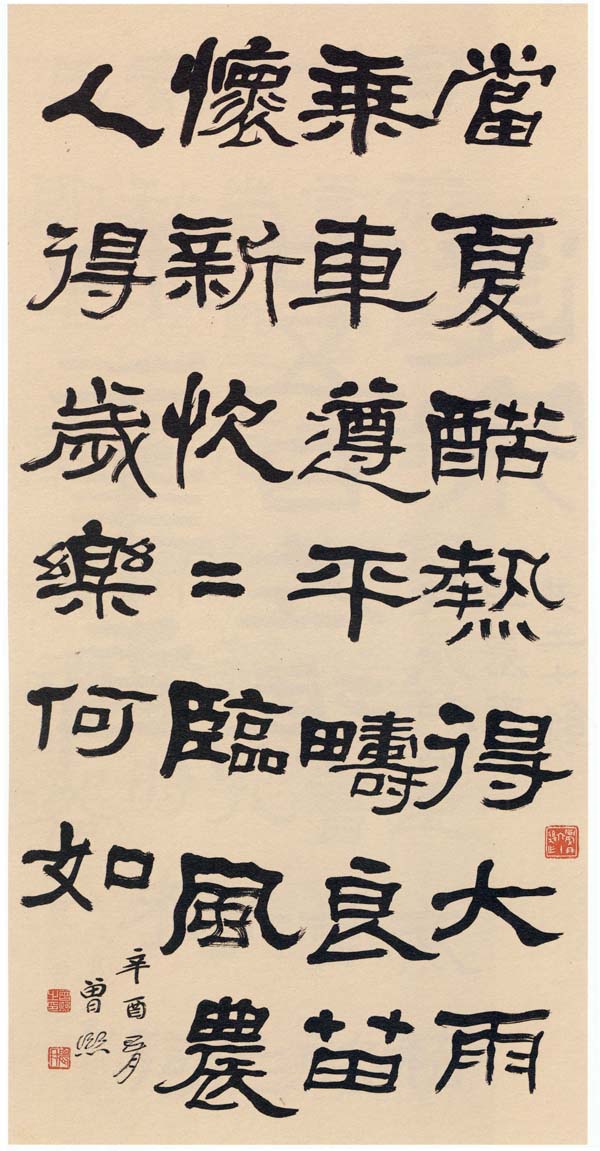 當夏酷熱得大雨
乘車遵平疇良苗
懷新快=臨風農
人得歲樂何如
辛酉
曾熙